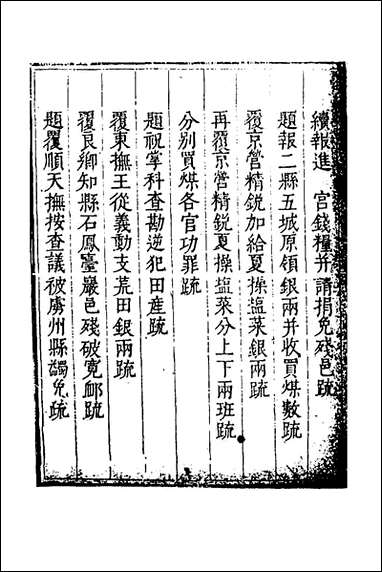 續報進　宮錢糧并請捐免殘邑疏
題報二縣五城原領銀兩并收買煤數疏
覆京營精銳加給夏操塩菜銀兩疏
再覆京營精銳夏操塩菜分上下兩班疏
分別買煤各官功罪疏
題祝掌科查勘逆犯田產疏
覆東撫王從義動支荒田銀兩疏
覆良鄉知縣石鳳臺巖邑殘破寬䘏疏
題覆順天撫按查議被虜州縣蠲免疏